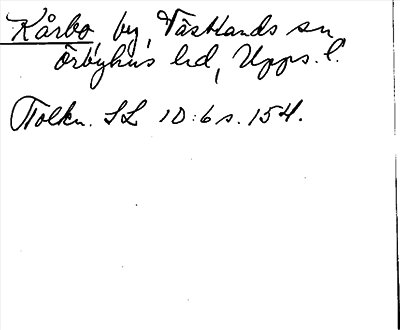 Kårbo, by, Västlands sn
Örbyhus hd, Upps. l.
Tolkn. SL 10:6 s. 154.